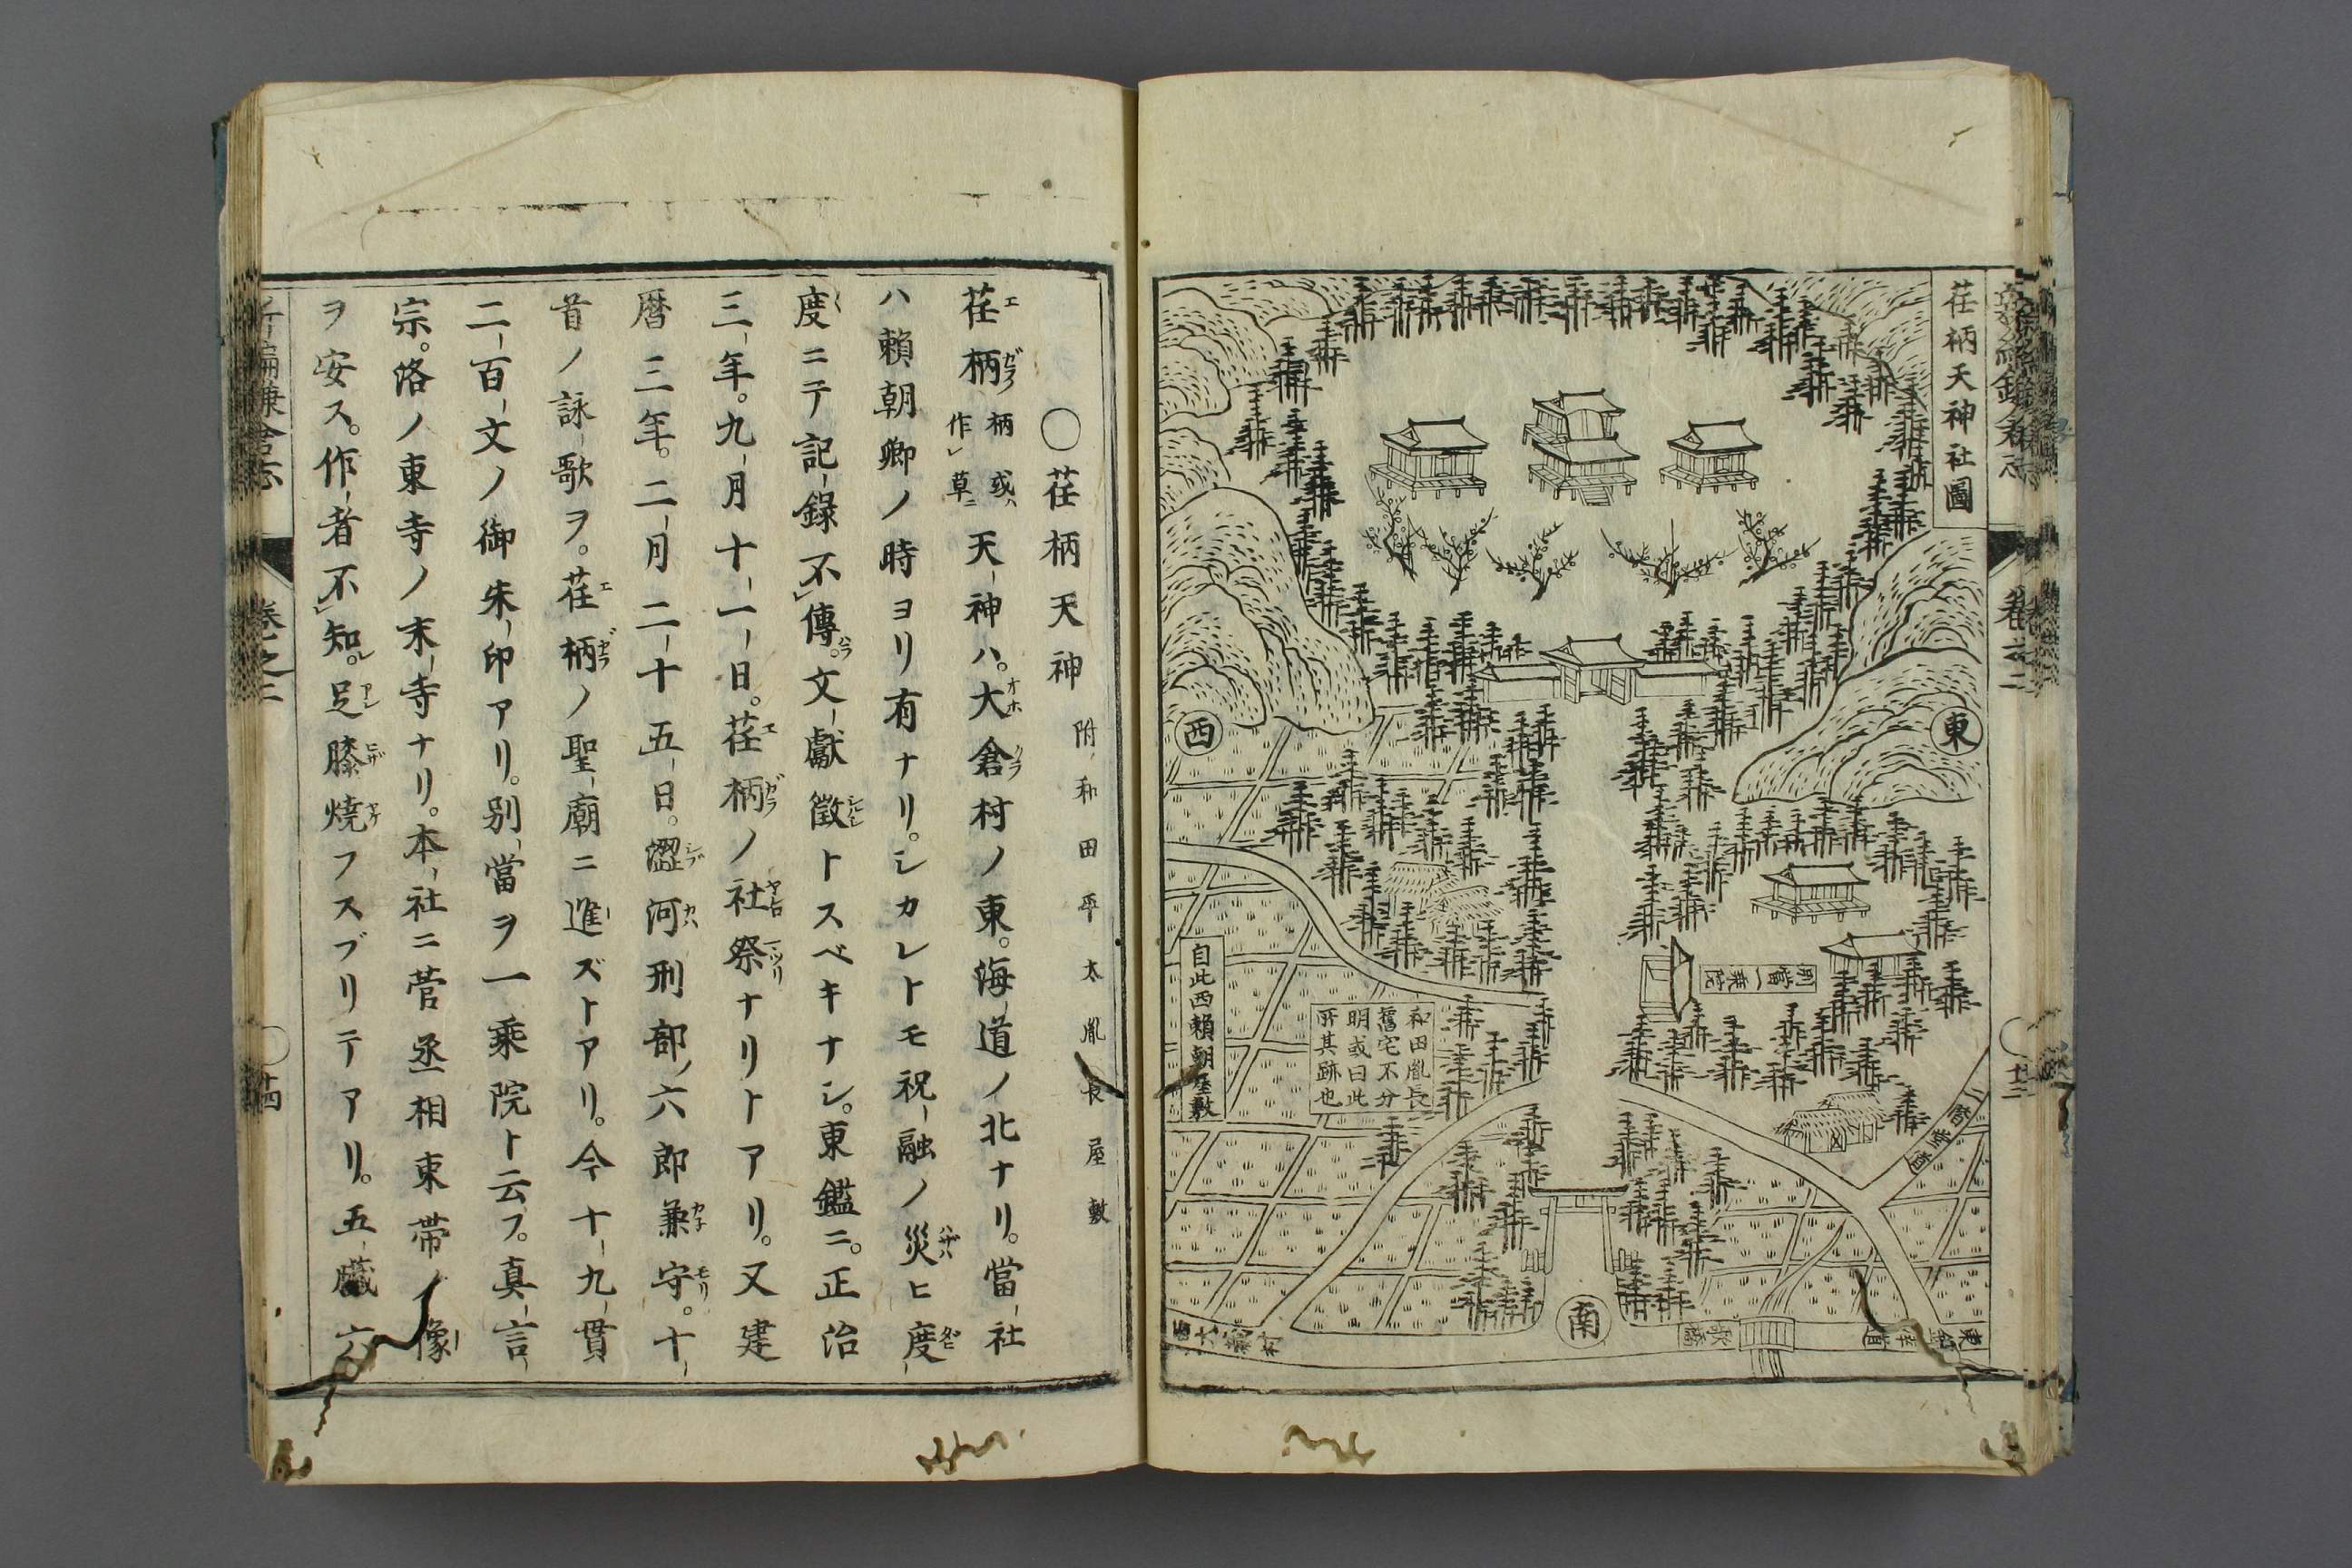 荏柄天神社圖
東
西
南
別當一乘院
和田胤長
舊宅不分
明或曰此
所其跡也
自此西賴朝屋敷
二階堂道
歌橋
卷之二
○荏柄天神 附和田平太胤長屋敷
荏柄柄或ハ作草ニ天神ハ。大倉村ノ東。海道ノ北ナリ。當社
ハ賴朝卿ノ時ヨリ有ナリ。シカレトモ祝融ノ災ヒ度
度ニテ記錄不傳。文獻徵トスベキナシ。東鑑ニ。正治
三年。九月十一日。荏柄ノ社祭ナリトアリ。又建
曆三年。二月二十五日。澀河刑部六郎兼守。十
首ノ詠歌ヲ。荏柄ノ聖廟ニ進ズトアリ。今十九貫
二百文ノ御朱印アリ。別當ヲ一乘院ト云フ。真言
宗。洛ノ東寺ノ末寺ナリ。本社ニ菅丞相束帶ノ像
ヲ安ス。作者不知。足膝焼フスブリテアリ。五臟六
新編鎌倉志
卷之二
十四